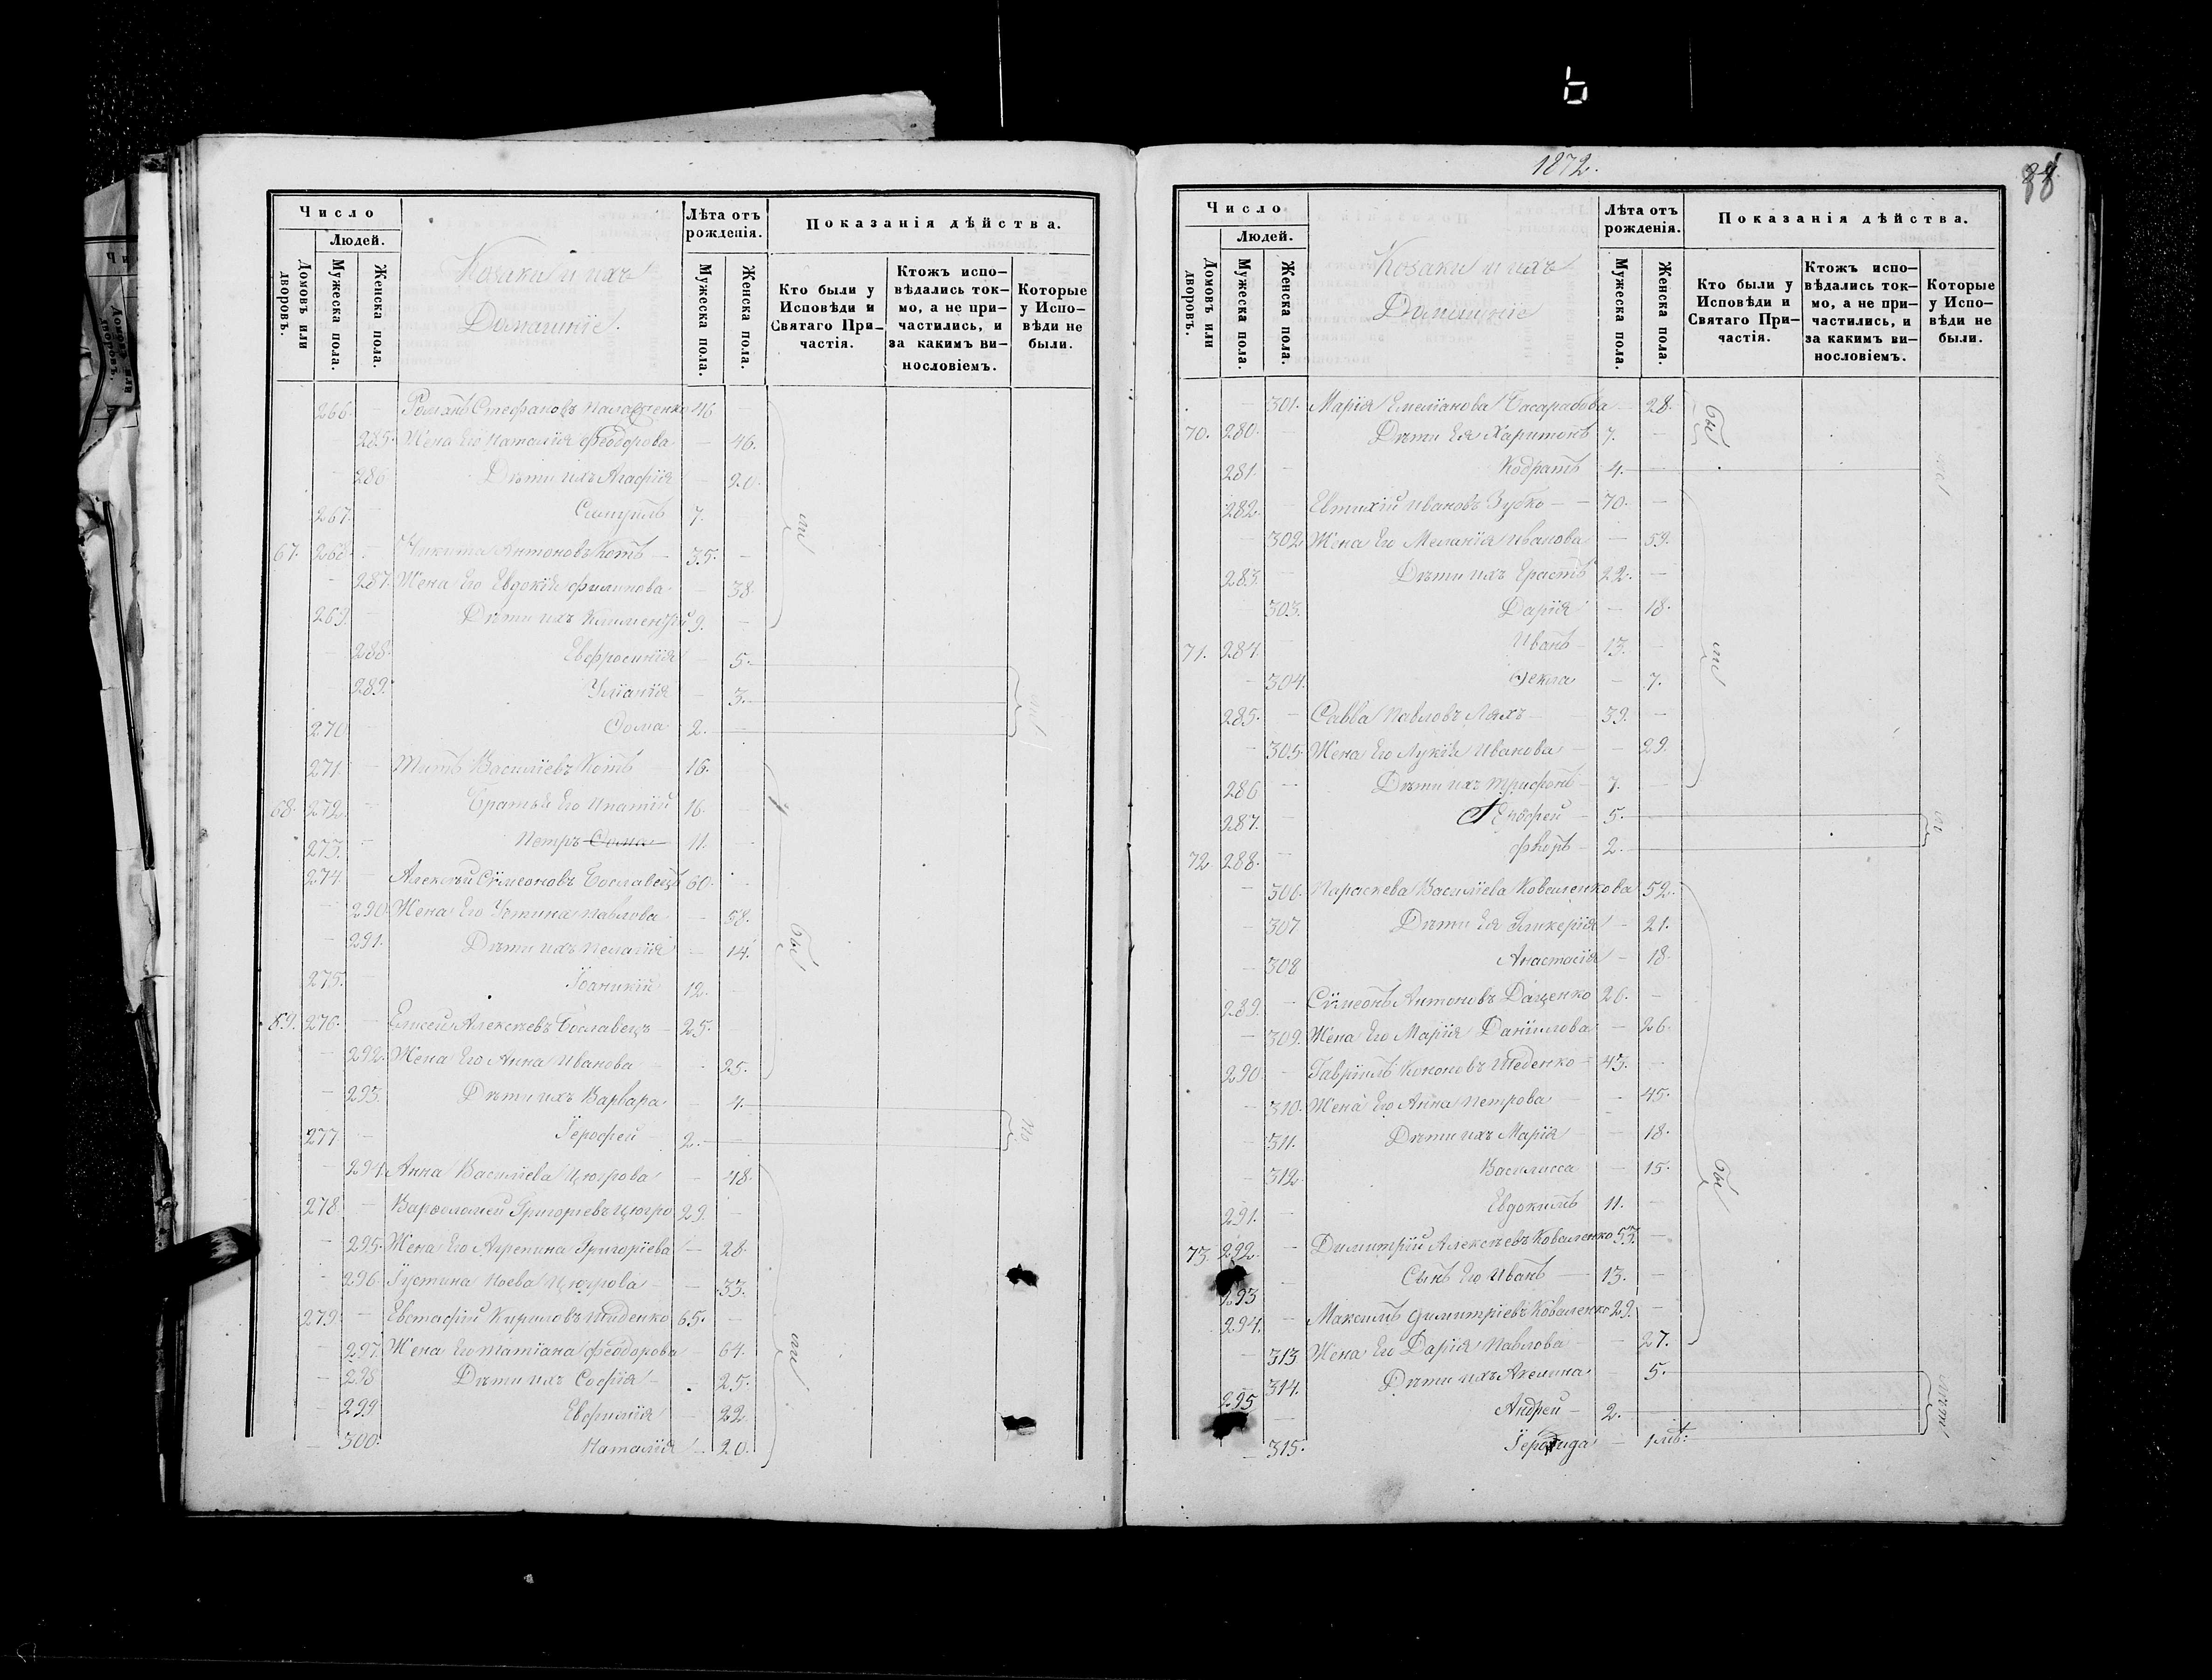 1872.
Число
Людей.
Домовъ или дворовъ.
Мужеска пола.
Женска пола.
Козаки и ихъ
Домашніе.
Лѣта отъ рожденія.
Мужеска пола.
Женска пола.
Показанія дѣйства.
Кто были у Исповѣди и Святаго При-
частія.
Ктожъ испо-
вѣдались ток-
мо, а не при-
частились, и
за какимъ ви-
нословіемъ.
Которые
у Испо-
вѣди не
были.
266. — Романъ Стефановъ 46
285. Жена Его Наталія Феодорова — 46.
286 Дѣти ихъ Агафія — 20.
267. — Самуилъ 7.
67. 268. — Никита Антоновъ Котъ — 35. —
287. Жена Его Евдокія Филипова — 38.
269. Дѣти ихъ Климентій 9. —
288. Евфросинія — 5.
289. Уліанія — 3.
270. Ѳома 2. —
271. — Титъ Василіевъ Котъ 16.
68. 272. — Братья Его Ипатій 16.
273. — Петръ Ѳома 11.
274 Алексѣй Сѷмеоновъ Бославецъ 60.
290 Жена Его Устина Павлова — 58.
291. Дѣти ихъ Пелагія — 14.
275. — Іоаникій 12. —
69. 276. — Елисей Алексѣевъ Бославецъ — 25.
292. Жена Его Анна Иванова — 25.
293. Дѣти ихъ Варвара — 4.
277 — Іерофей 2. —
294. Анна Василіева Цюгрова — 48.
278. — Варѳоломей Григоріевъ Цюгро 29. —
295. Жена Его Агрепина Григоріева — 28.
296. Іустина Цюгрова — 33.
279. — Евстафій Кириловъ 65. —
297. Жена Его Татіана Феодорова — 64.
298 Дѣти ихъ Софія — 25.
299 Евфимія — 22.
300. Наталія — 20.
Число
Людей.
Домовъ или дворовъ.
Мужеска пола.
Женска пола.
Козаки и ихъ
Домашніе
Лѣта отъ рожденія.
Мужеска пола.
Женска пола.
Показанія дѣйства.
Кто были у
Исповѣди и
Святаго При-
частія.
Ктожъ испо-
вѣдались ток-
мо, а не при-
частились, и
за какимъ ви-
нословіемъ.
Которые
у Испо-
вѣди не
были.
— 301. Марія Емеліанова Басарабова — 28.
70. 280. — Дѣти Ея Харитонъ 7. —
281. — Кодратъ 4. —
282. — Евтихій Ивановъ Зубко — 70. —
302 Жена Его Меланія Иванова — 59.
283. — Дѣти ихъ Ерастъ 22. —
303. Дарія — 18.
71. 284. — Иванъ — 13. —
— 304. Ѳекла — 7.
285. — Савва Павловъ Ляхъ — 39. —
— 305. Жена Его Лукія Иванова — 29.
286 — Дѣти ихъ Трифонъ — 7. —
287. — 5. —
72 288. — Флоръ — 2. —
— 306. Параскева Василіева Коваленкова 52.
— 307 Дѣти Ея Гликерія — 21.
— 308 Анастасія — 18.
289. — Сѷмеонъ Антоновъ Даценко 26. —
— 309. Жена Его Марія Даніилова — 26.
290 — Гавріилъ Кононовъ 43. —
— 310. Жена Его Анна Петрова — 45.
— 311. Дѣти ихъ Марія — 18.
— 312. Василисса — 15.
291. — Евдокимъ 11. —
73. 292. — Димитрій Алексѣевъ Коваленко 53. —
293 — Сынъ Его Иванъ — 13. —
294. — Максимъ Димитріевъ Коваленко 29. —
— 313 Жена Его Дарія Павлова — 27.
314. Дѣти ихъ Акелина 5.
295 — Андрей — 2. —
— 315. — 1